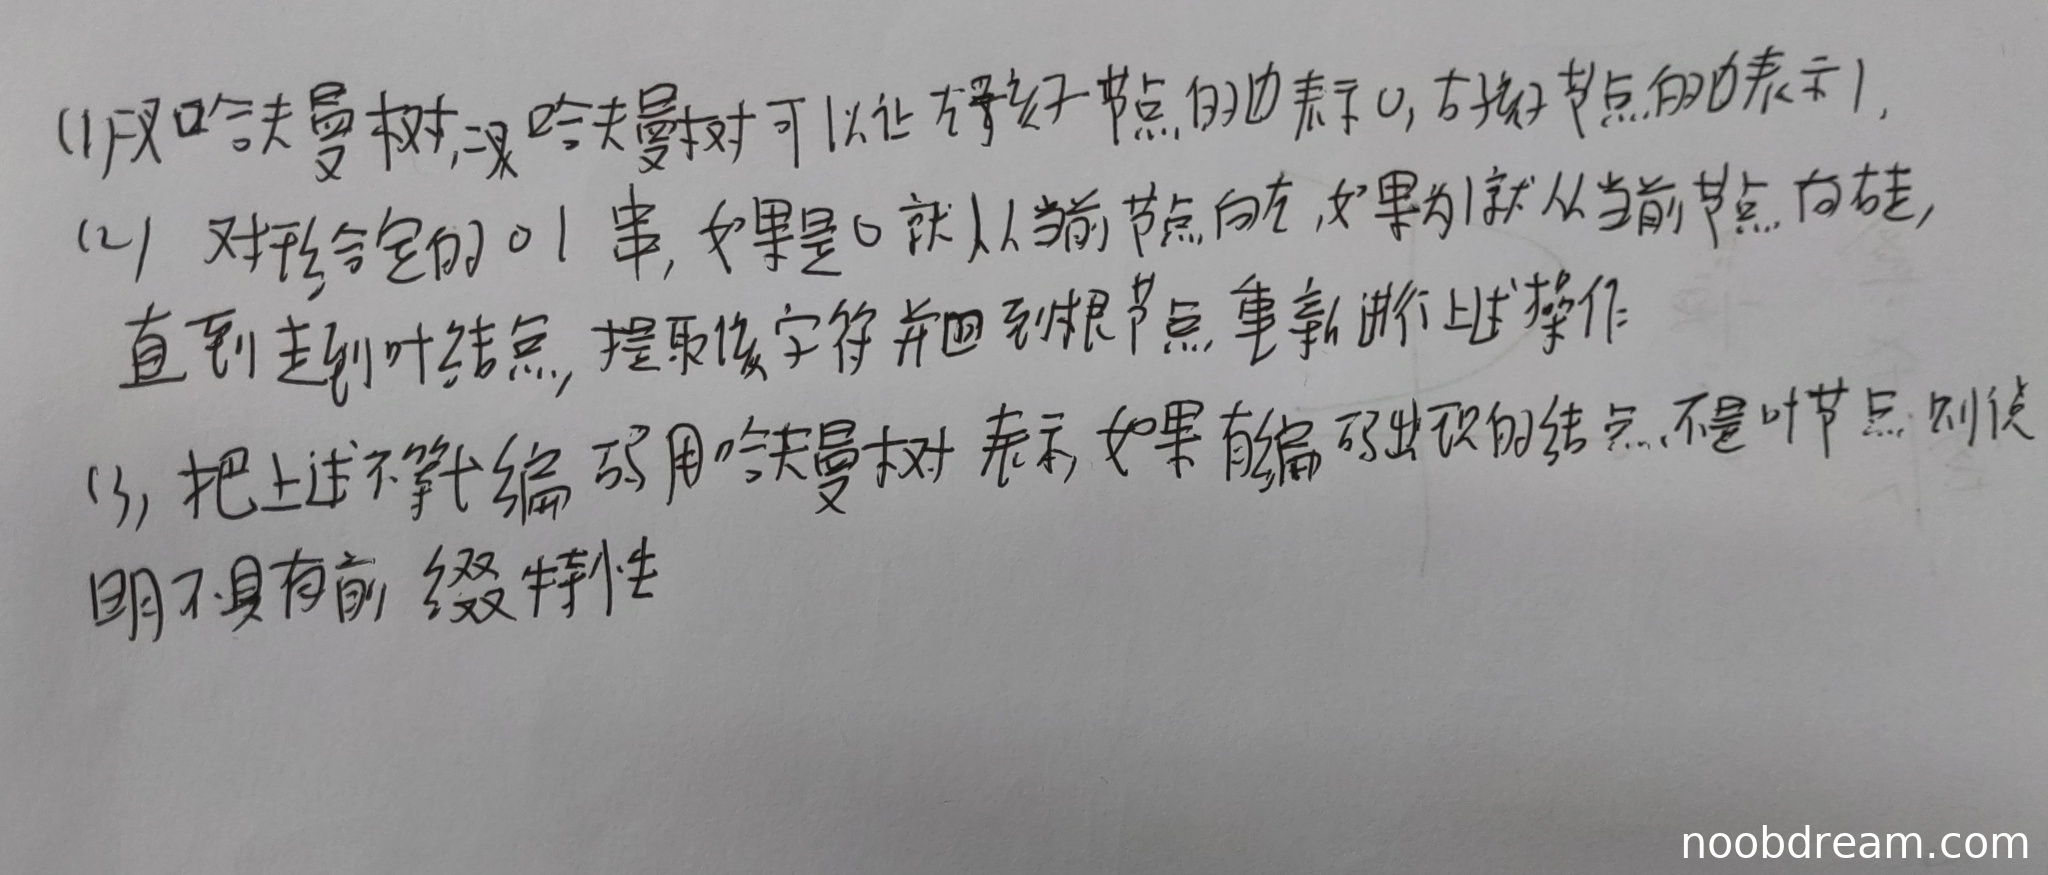 (1) 二叉哈夫曼树,二叉哈夫曼树可以让左孩子节点的边表示0,右孩子节点的边表示1,
(2) 对形给定的01串,如果是0就从当前节点向左,如果为1就从当前节点向右走,
直到走到叶结点,提取该字符并回到根节点重新进行上述操作
(3) 把上述不等长编码用哈夫曼树表示,如果有编码出现的结点不是叶节点则说
明不具有前缀特性
noobdream.com